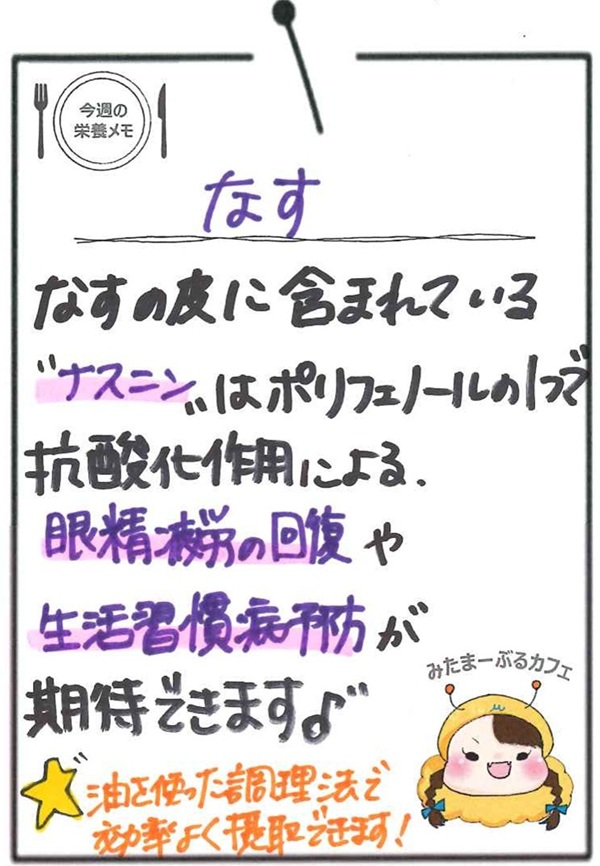 今週の
栄養メモ
なす
なすの皮に含まれている
"ナスニン"はポリフェノールの1つで
抗酸化作用による、
眼精疲労の回復や
生活習慣病予防が
期待できます♪"
みたまーぶるカフェ
油を使った調理法で
効率よく摂取できます!